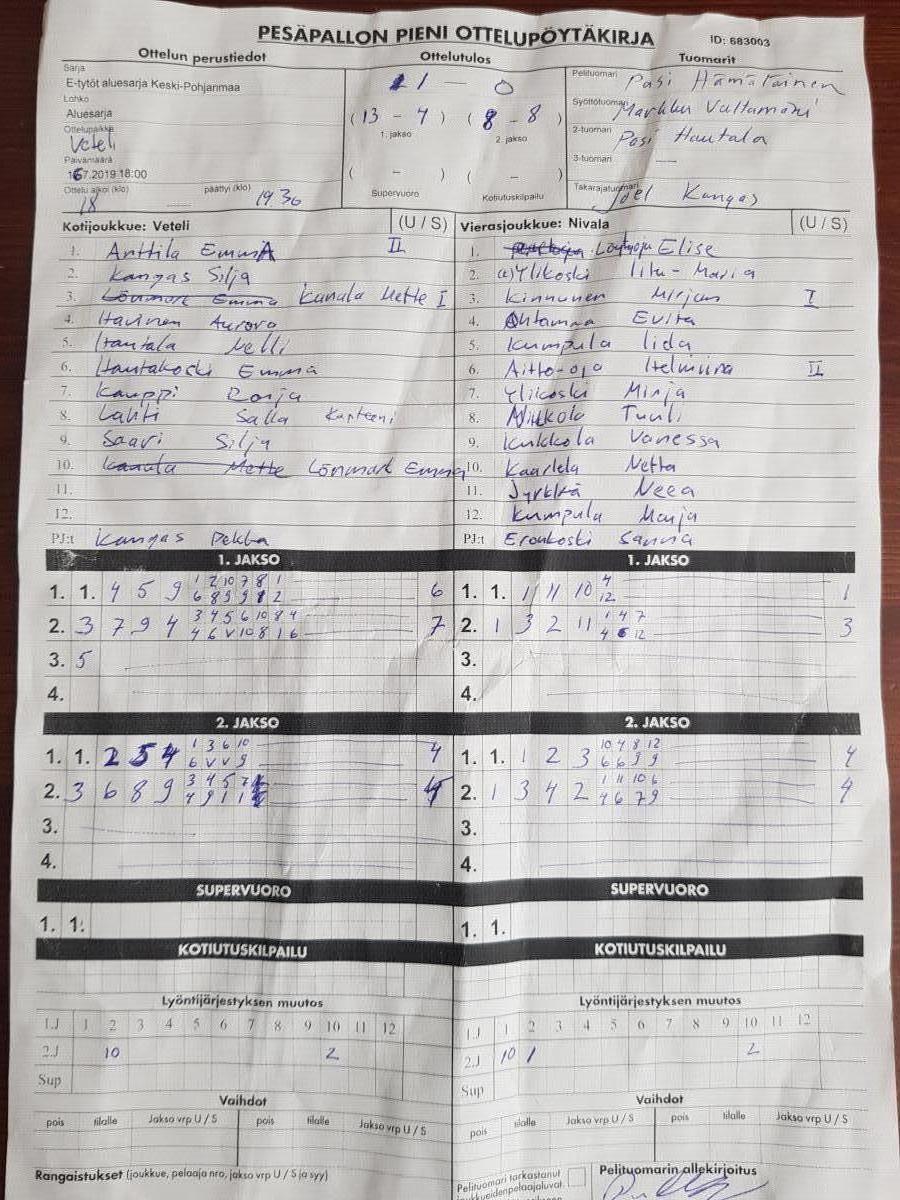 PESÄPALLON PIENI OTTELUPÖYTÄKIRJA ID: 683003
Ottelun perustiedot Ottelutulos Tuomarit
Sarja
E-tytöt aluesarja Keski-Pohjanmaa 1 — 0
Pelituomari Pasi Hämäläinen
Lohko
Aluesarja (13 - 7) (8 - 8)
1. jakso 2. jakso
Syöttötuomari Markku
Ottelupaikka
Veteli
2-tuomari Pasi Hautala
Päivämäärä
16.7.2019 18:00
3-tuomari —
( - ) ( - )
Ottelu alkoi (klo) päättyi (klo)
18 19.30
Supervuoro Kotiutuskilpailu
Takarajatuomari Joel Kangas
Kotijoukkue: Veteli (U / S) Vierasjoukkue: Nivala (U / S)
1. Anttila Emma II 1. Elise
2. Kangas Silja 2. Ylikoski Iitu-Maria
3. Lönmark Emma Kanala Mette I 3. Kinnunen Mirjam I
4. Havinen Aurora 4. Ahtamaa Evita
5. Hautala Nelli 5. Kumpula Iida
6. Hautakoski Emma 6. Aitto-oja Helmiina II
7. Kauppi Ronja 7. Ylikoski Minja
8. Lahti Salla Kapteeni 8. Mikkola Tuuli
9. Saari Silja 9. Kukkola Vanessa
10. Kanala Mette Lönmark Emma 10. Kaarlela Netta
11. 11. Jyrkkä Neea
12. 12. Kumpula Marja
PJ:t Kangas Pekka PJ:t Eronkoski Sanna
1. JAKSO 1. JAKSO
1 2 10 7 8 1 4
1. 1. 4 5 9 6 8 9 9 8 2 6 1. 1. 1 11 10 12 1
3 4 5 6 10 8 4 1 4 7
2. 3 7 9 4 4 6 V 10 8 1 6 7 2. 1 3 2 11 4 6 12 3
3. 5 3.
4. 4.
2. JAKSO 2. JAKSO
1 3 6 10 10 4 8 12
1. 1. 2 5 4 6 V V 9 4 1. 1. 1 2 3 6 6 9 9 4
3 4 5 7 1 11 10 6
2. 3 6 8 9 4 9 1 1 4 2. 1 3 4 2 4 6 7 9 4
3. 3.
4. 4.
SUPERVUORO SUPERVUORO
1. 1. 1. 1.
KOTIUTUSKILPAILU KOTIUTUSKILPAILU
Lyöntijärjestyksen muutos Lyöntijärjestyksen muutos
1.J 1 2 3 4 5 6 7 8 9 10 11 12 1.J 1 2 3 4 5 6 7 8 9 10 11 12
2.J 10 2 2.J 10 1 2
Sup Sup
Vaihdot Vaihdot
pois tilalle Jakso vrp U / S pois tilalle Jakso vrp U / S pois tilalle Jakso vrp U / S pois tilalle Jakso vrp U / S
Rangaistukset (joukkue, pelaaja nro, jakso vrp U / S ja syy) Pelituomari tarkastanut joukkueidenpelaajaluvat. Pelituomarin allekirjoitus